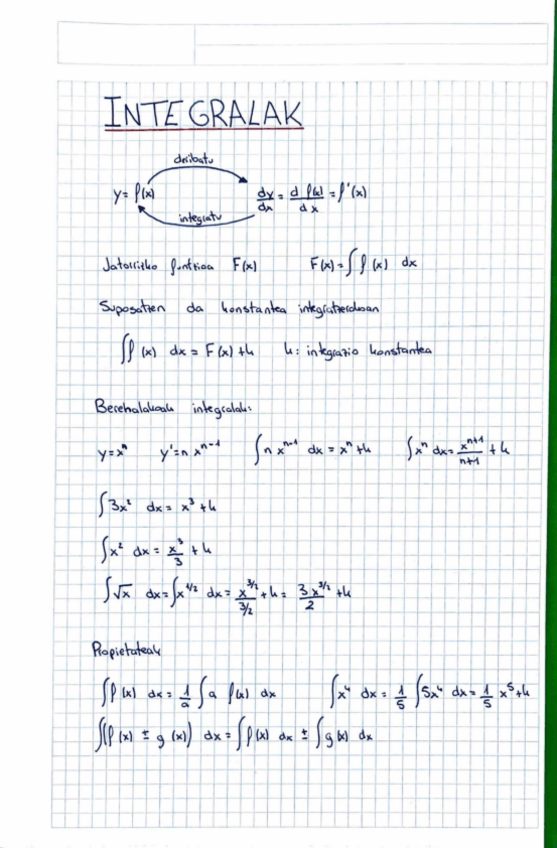 INTEGRALAK
deribatu
y = f(x) dy/dx = d f(x)/dx = f'(x)
integratu
Jatorrizko funtzioa F(x) F(x) = ∫ f(x) dx
Suposatzen da konstantea integratzerakoan
∫ f(x) dx = F(x) + k k: integrazio konstantea
Berehalakoak integralak:
y = xⁿ y' = n xⁿ⁻¹ ∫ n xⁿ⁻¹ dx = xⁿ + k ∫ xⁿ dx = xⁿ⁺¹/n+1 + k
∫ 3x² dx = x³ + k
∫ x² dx = x³/3 + k
∫ √x dx = ∫ x^(1/2) dx = x^(3/2)/(3/2) + k = 3x^(3/2)/2 + k
Propietateak
∫ f(x) dx = 1/a ∫ a f(x) dx ∫ x⁴ dx = 1/5 ∫ 5x⁴ dx = 1/5 x⁵ + k
∫ (f(x) ± g(x)) dx = ∫ f(x) dx ± ∫ g(x) dx